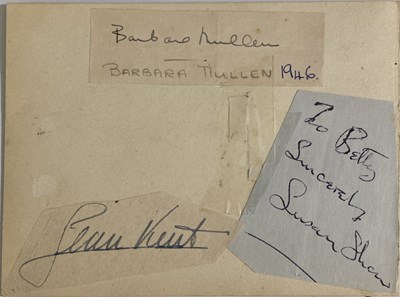 Barbara Mullen
BARBARA MULLEN 1946.
To Betty
Sincerely
Susan Shaw
Jean Kent